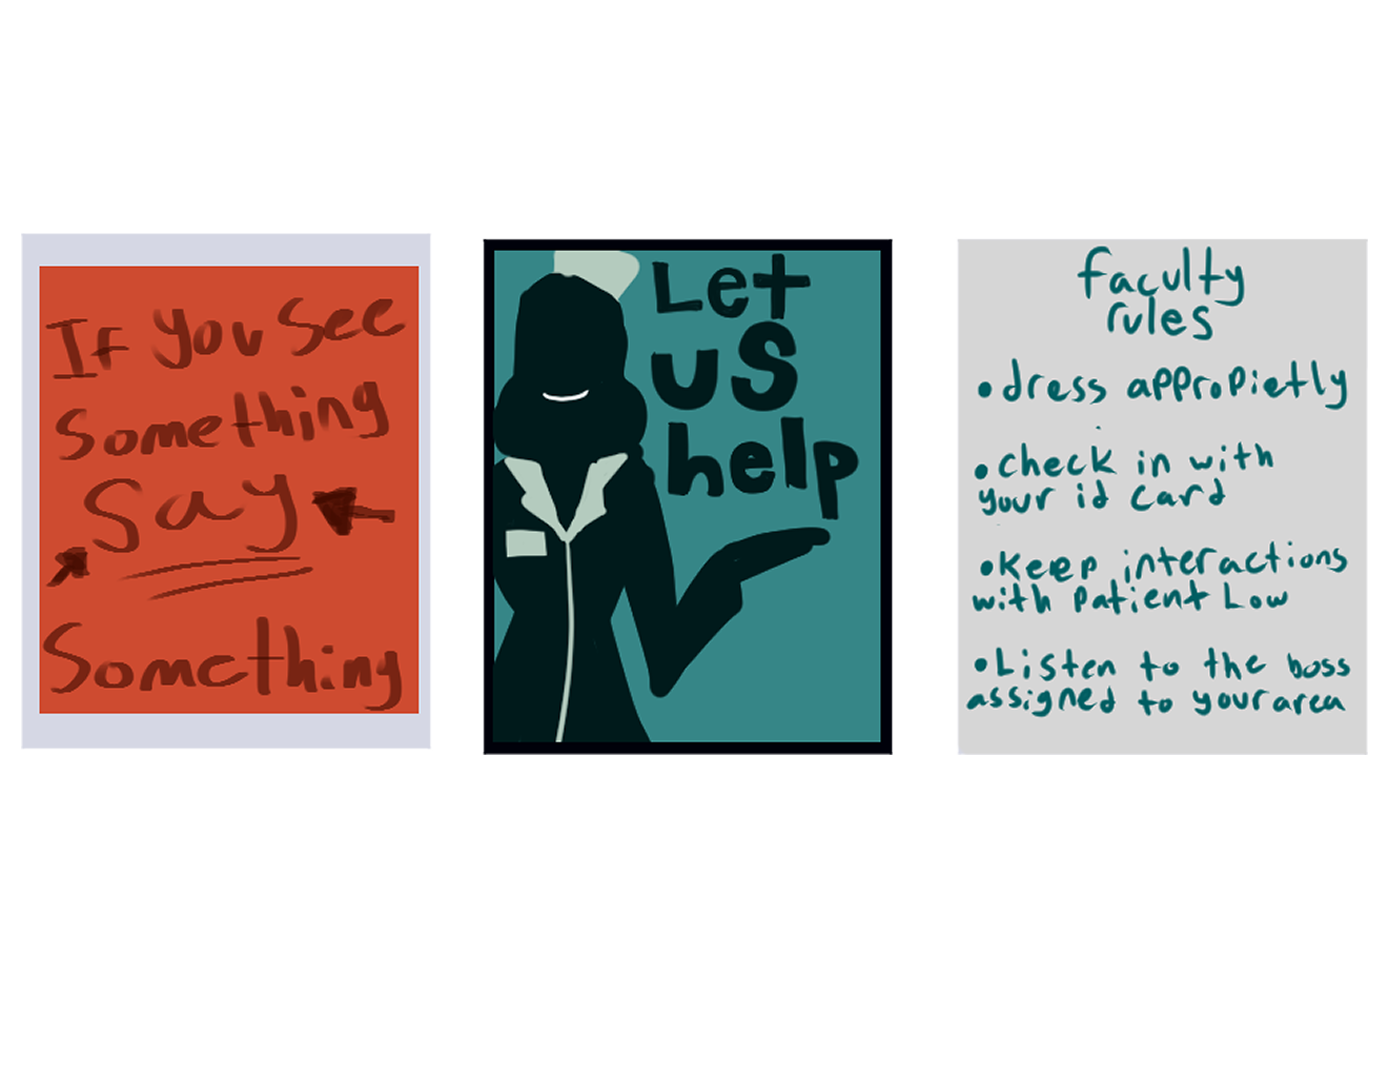 If you see
Something
Say
Something
Let
us
help
faculty
rules
• dress appropietly
• check in with
your id card
• Keep interactions
with patient Low
• Listen to the boss
assigned to your area